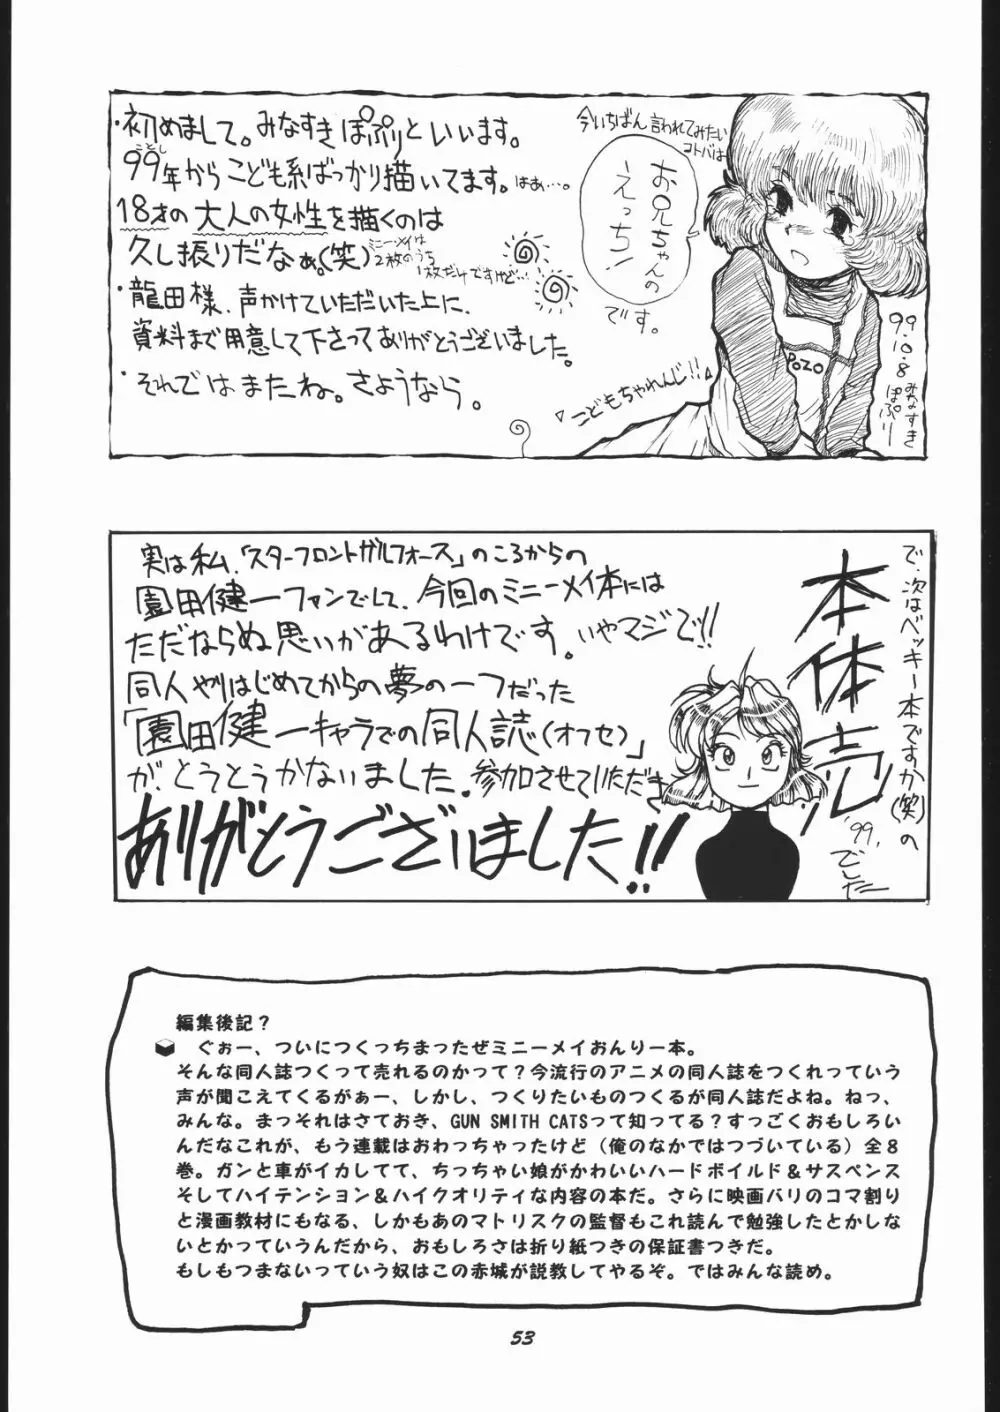 ・初めまして。みなすきぽぷりといいます。
99年からこども系ばっかり描いてます。はあ…。
ことし
18才の大人の女性を描くのは
久し振りだなぁ。(笑)
ミニーメイは
2枚のうち
1枚だけですけど…!
・龍田様、声かけていただいた上に、
資料まで用意して下さってありがとうございました。
・それではまたね。さようなら。
今いちばん言われてみたい
コトバは
お兄ちゃんの
えっち!
です。
こどもちゃれんじ!!
POZO
99.10.8 みなすき
ぽぷりー
実は私、「スターフロントガルフォース」のころからの
園田健一ファンでして、今回のミニーメイ本には
ただならぬ思いがあるわけです。いやマジで!!
同人やりはじめてからの夢の一つだった
「園田健一キャラでの同人誌(オフセ)」
が、とうとうかないました。参加させていただき
ありがとうございました!!
で、次はベッキー本ですか(笑)の
本体売
'99,
でしたー
編集後記？
ぐぉー、ついにつくっちまったぜミニーメイおんりー本。
そんな同人誌つくって売れるのかって？今流行のアニメの同人誌をつくれっていう
声が聞こえてくるがぁー、しかし、つくりたいものつくるが同人誌だよね。ねっ、
みんな。まっそれはさておき、GUN SMITH CATSって知ってる？すっごくおもしろい
んだなこれが、もう連載はおわっちゃったけど（俺のなかではつづいている）全８
巻。ガンと車がイカしてて、ちっちゃい娘がかわいいハードボイルド＆サスペンス
そしてハイテンション＆ハイクオリティな内容の本だ。さらに映画バリのコマ割り
と漫画教材にもなる、しかもあのマトリスクの監督もこれ読んで勉強したとかしな
いとかっていうんだから、おもしろさは折り紙つきの保証書つきだ。
もしもつまないっていう奴はこの赤城が説教してやるぞ。ではみんな読め。
53